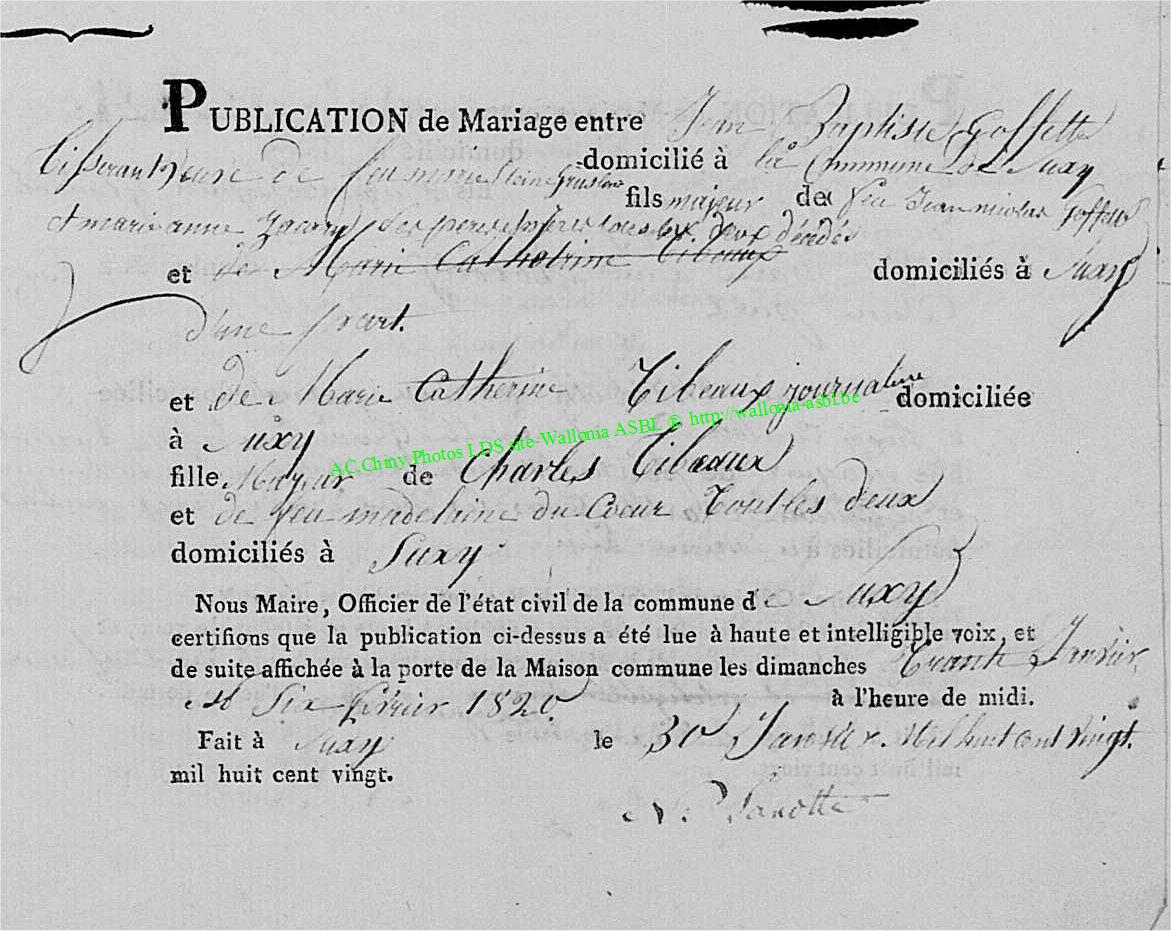 PUBLICATION de Mariage entre Jean Baptiste Goffette
tisserant veuve de domicilié à la Commune de Suxy
fils majeur de feu Jean nicolas Goffette
et marie anne des tous les deux décédés
et de Marie Catherine Tibeaux domiciliés à Suxy
d'une part.
et de Marie Catherine Tibeaux journalière domiciliée
à Suxy
fille Majeur de Charles Tibeaux
et de feu madeleine du Coeur Tout les deux
domiciliés à Suxy
Nous Maire, Officier de l'état civil de la commune de Suxy
certifions que la publication ci-dessus a été lue à haute et intelligible voix, et
de suite affichée à la porte de la Maison commune les dimanches Trante Janvier
et Six février 1820. à l'heure de midi.
Fait à Suxy le 30 Janvier Mil huit cent vingt.
mil huit cent vingt.
AC Chiny Photos LDS site-Wallonia ASBL ® http://wallonia-asbl.be